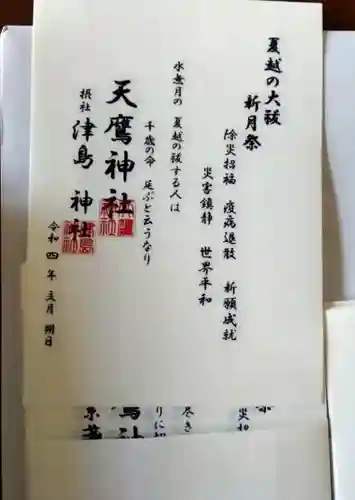 夏越の大祓
新月祭
除災招福 疫病退散 祈願成就
災害鎮静 世界平和
水無月の 夏越の祓する人は
千歳の命 延ぶと云うなり
天鷹神社
摂社 津島 神社
令和四年 文月 朔日